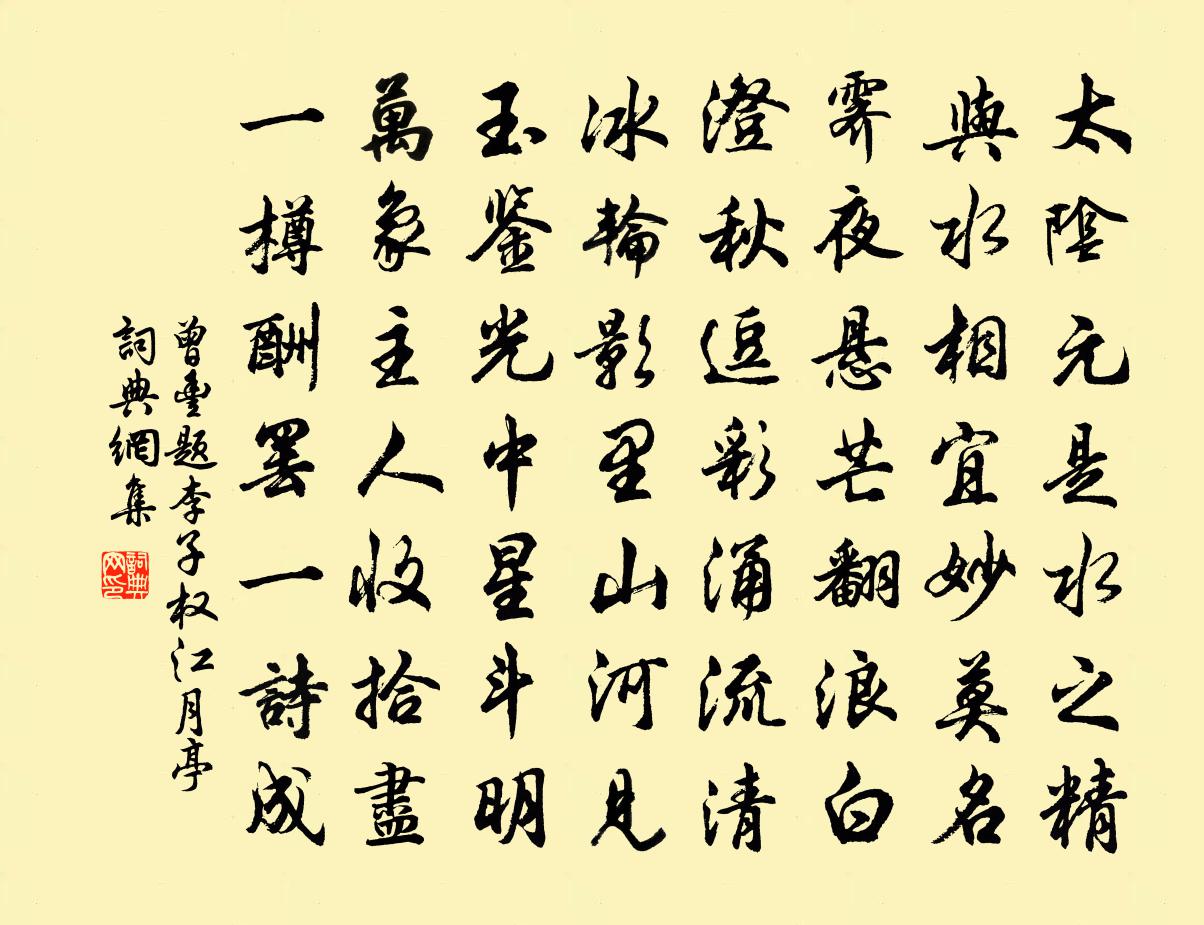 太陰元是水之精
與水相宜妙莫名
霽夜懸芒翻浪白
澄秋逗彩涌流清
冰輪影里山河見
玉鑒光中星斗明
萬象主人收拾盡
一樽酬罢一詩成
曾豐題李子权江月亭
詞典網集
詞典网印